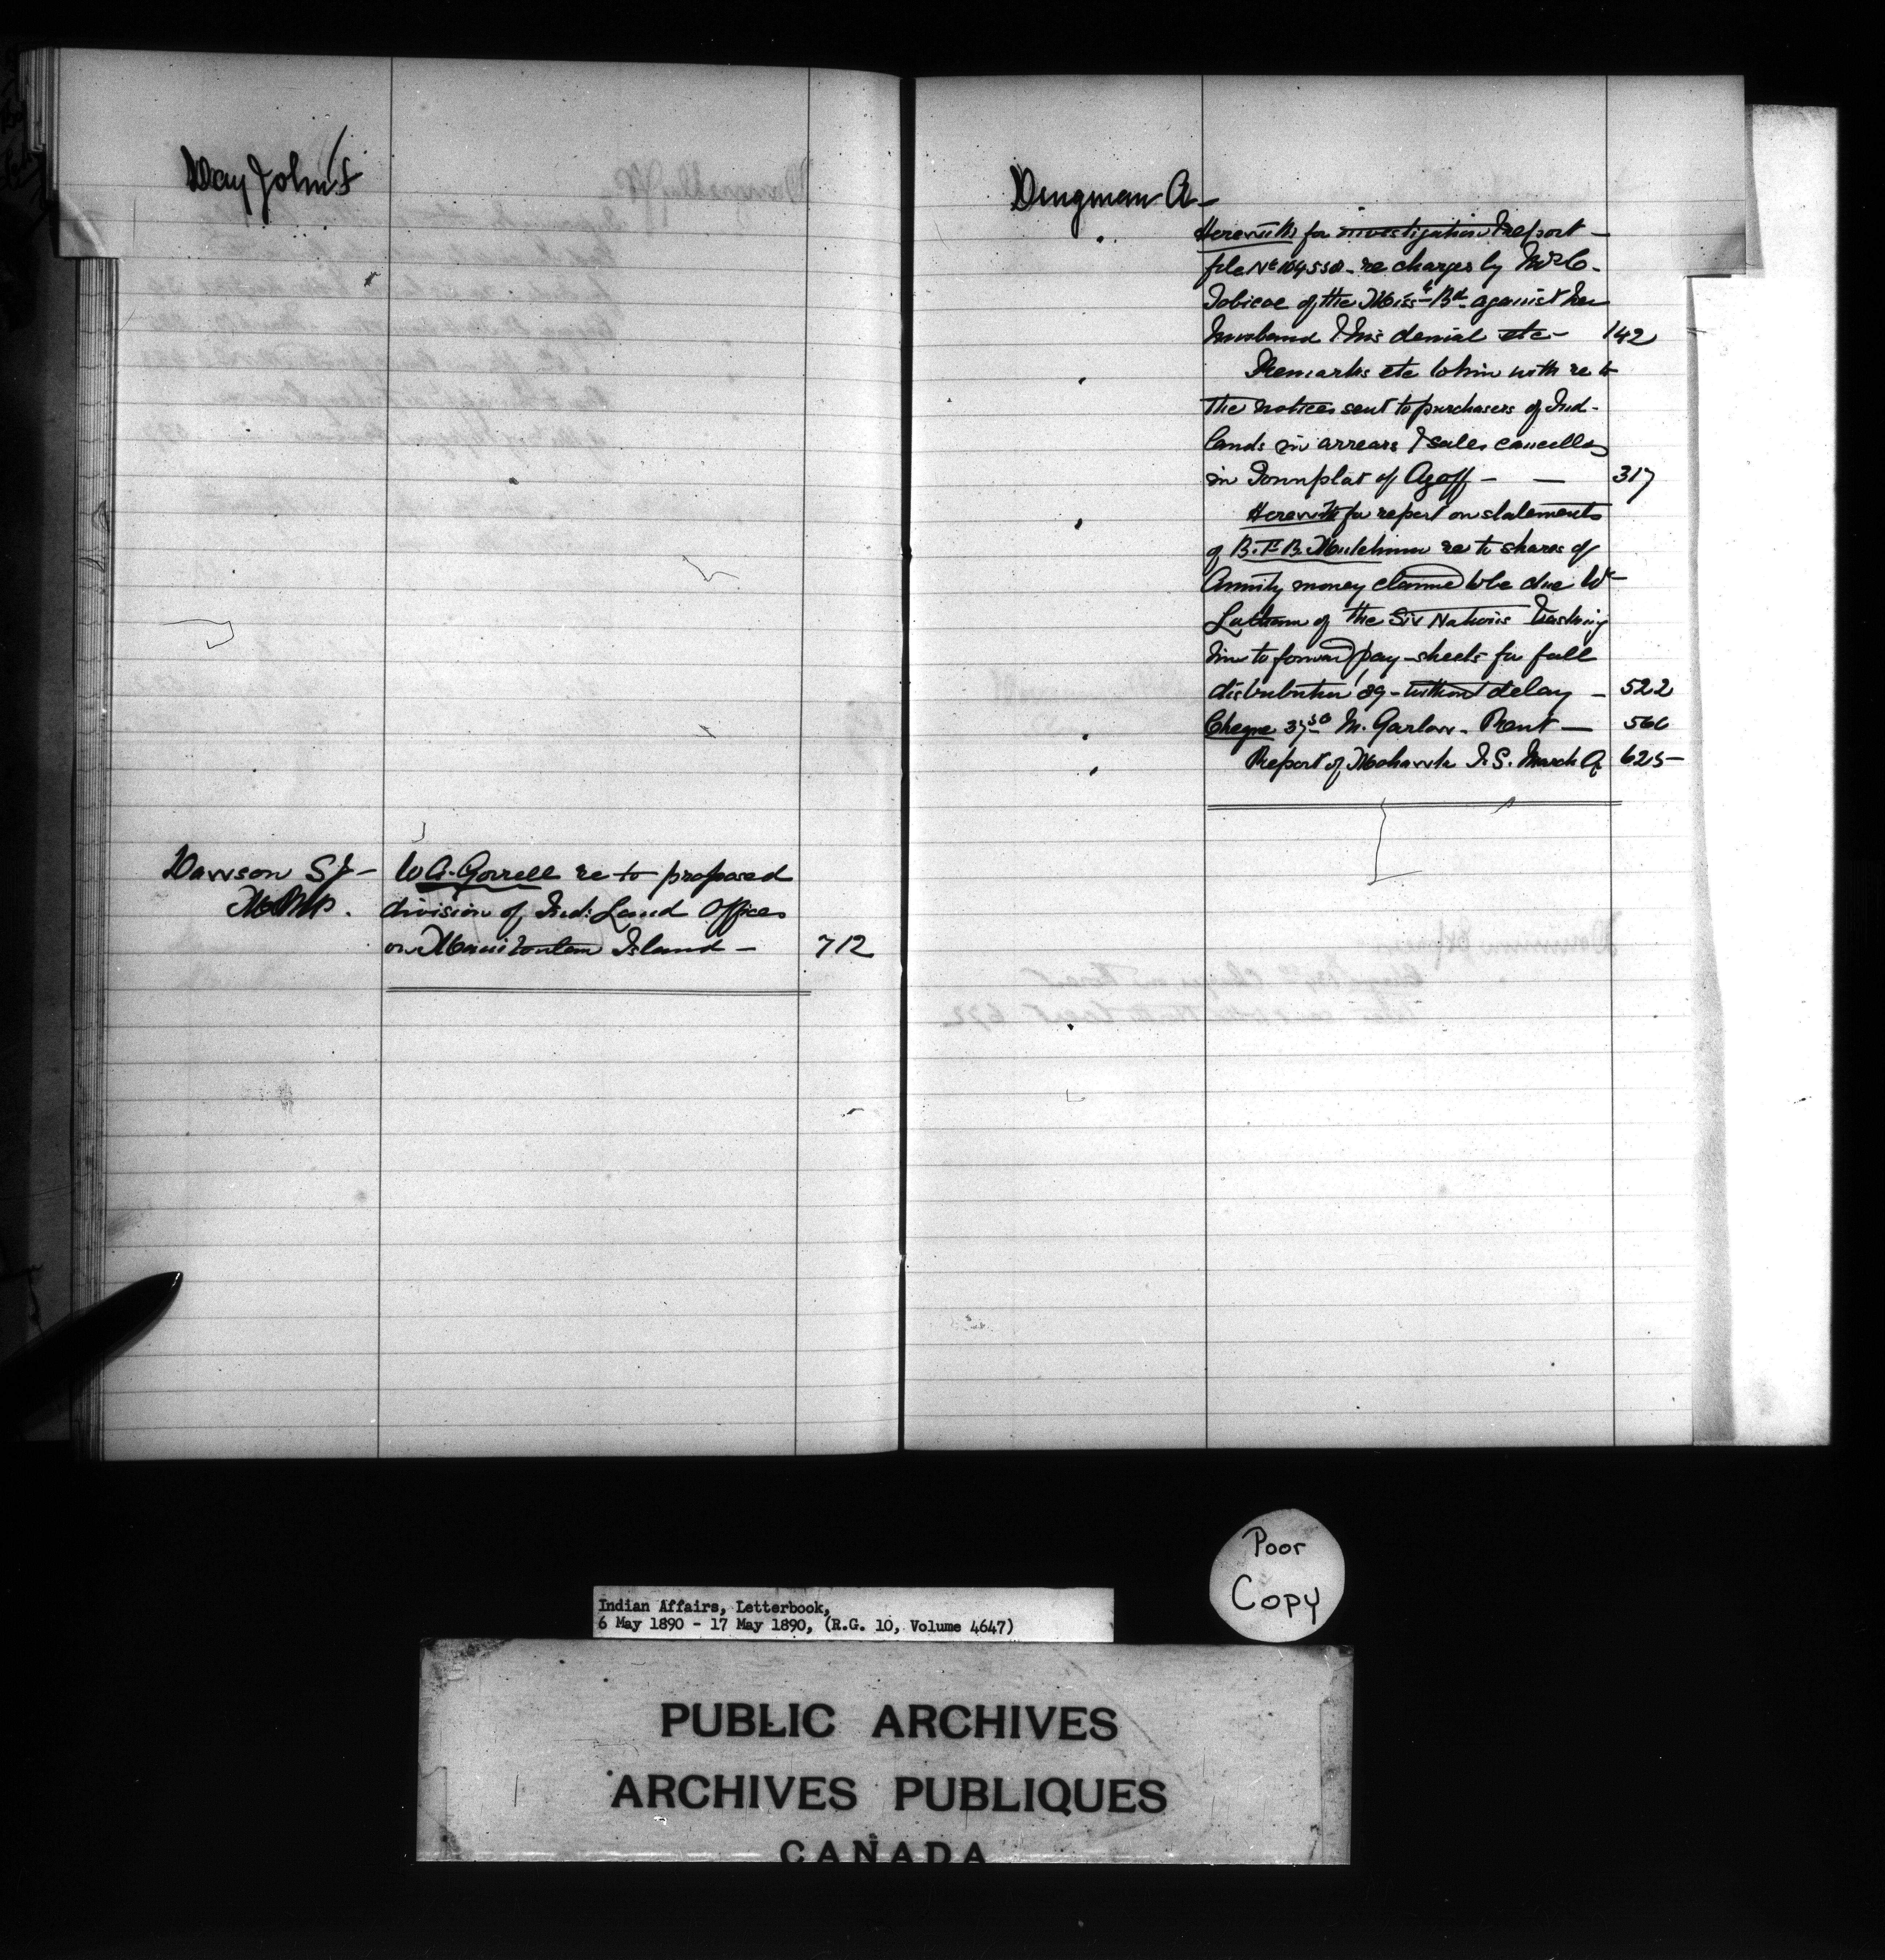 Day John S
Dawson S J -
M.P.
W A. Gorrell re to proposed
division of Ind: Land Offices
on Manitoulin Island - 712
Dingman A -
Herewith for investigation & report -
file No 104558 - re charges by Mrs C.
Tobicoe of the Miss. Bd. against her
husband & his denial etc - 142
Remarks etc to him with re to
the notices sent to purchasers of Ind-
lands in arrears & sales cancelled
in Townplot of Azoff - - 317
Herewith for report on statements
of B. F. B. Hutchinson re to shares of
Annuity money claimed to be due W -
of the Six Nations & asking
him to forward pay-sheets for fall
distribution '89 - without delay - 522
Cheque 37 50 M. Garlow - Rent - 566
Report of Mohawk I. S. March Q 625 -
Poor
Copy
Indian Affairs, Letterbook,
6 May 1890 - 17 May 1890, (R.G. 10, Volume 4647)
PUBLIC ARCHIVES
ARCHIVES PUBLIQUES
CANADA